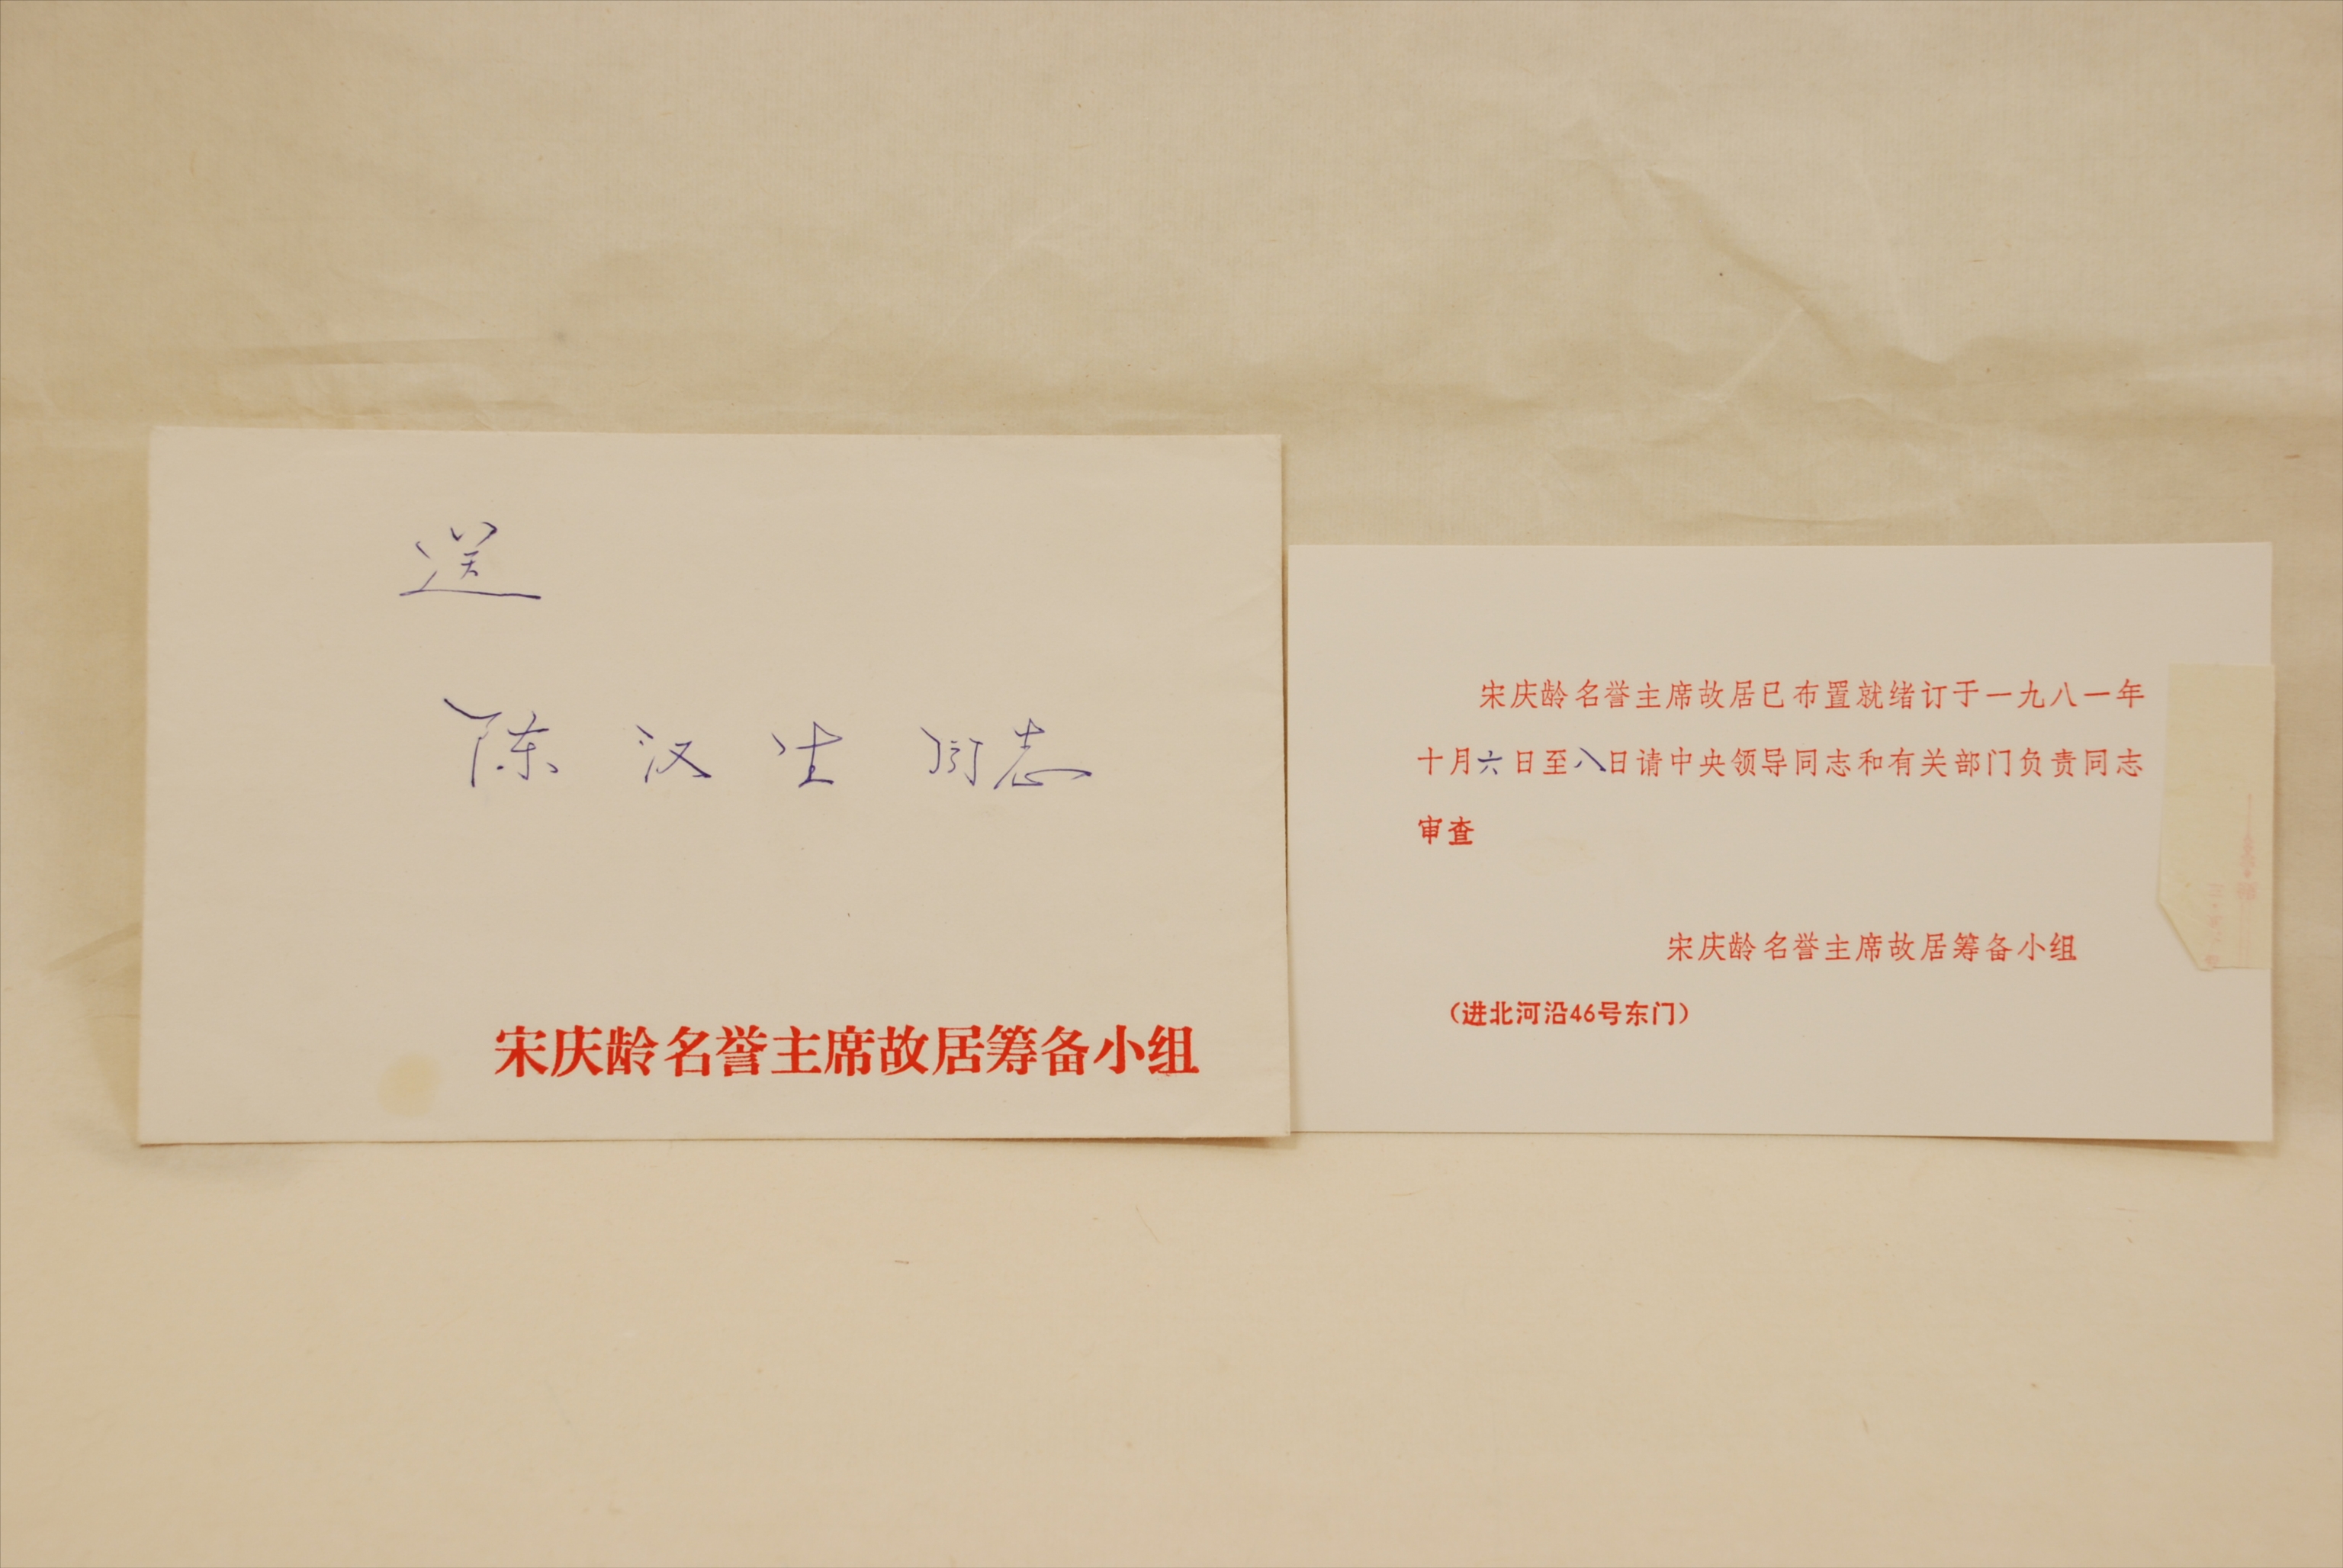 送
陈汉生同志
宋庆龄名誉主席故居筹备小组
宋庆龄名誉主席故居已布置就绪订于一九八一年
十月六日至八日请中央领导同志和有关部门负责同志
审查
宋庆龄名誉主席故居筹备小组
（进北河沿46号东门）